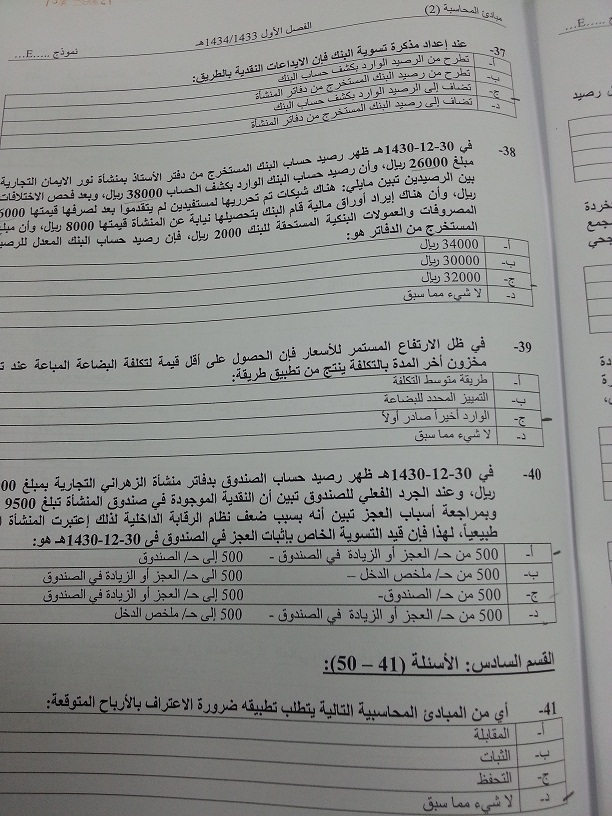 مبادئ المحاسبة (2)
الفصل الأول 1434/1433هـ
نموذج ....E...
37- عند إعداد مذكرة تسوية البنك فإن الإيداعات النقدية بالطريق:
أ- تطرح من الرصيد الوارد بكشف حساب البنك
ب- تطرح من رصيد البنك المستخرج من دفاتر المنشأة
ج- تضاف إلى الرصيد الوارد بكشف حساب البنك
د- تضاف إلى رصيد البنك المستخرج من دفاتر المنشأة
38- في 30-12-1430هـ ظهر رصيد حساب البنك المستخرج من دفتر الأستاذ بمنشأة نور الايمان التجارية
مبلغ 26000 ريال، وأن رصيد حساب البنك الوارد بكشف الحساب 38000 ريال، وبعد فحص الاختلافات
بين الرصيدين تبين مايلي: هناك شيكات تم تحريرها لمستفيدين لم يتقدموا بعد لصرفها قيمتها
ريال، وأن هناك إيراد أوراق مالية قام البنك بتحصيلها نيابة عن المنشأة قيمتها 8000 ريال، وأن
المصروفات والعمولات البنكية المستحقة للبنك 2000 ريال، فإن رصيد حساب البنك المعدل
المستخرج من الدفاتر هو:
أ- 34000 ريال
ب- 30000 ريال
ج- 32000 ريال
د- لا شيء مما سبق
39- في ظل الارتفاع المستمر للأسعار فإن الحصول على أقل قيمة لتكلفة البضاعة المباعة عند
مخزون أخر المدة بالتكلفة ينتج من تطبيق طريقة:
أ- طريقة متوسط التكلفة
ب- التمييز المحدد للبضاعة
ج- الوارد أخيراً صادر أولاً
د- لا شيء مما سبق
40- في 30-12-1430هـ ظهر رصيد حساب الصندوق بدفاتر منشأة الزهراني التجارية بمبلغ
ريال، وعند الجرد الفعلي للصندوق تبين أن النقدية الموجودة في صندوق المنشأة تبلغ 9500
وبمراجعة أسباب العجز تبين أنه بسبب ضعف نظام الرقابة الداخلية لذلك إعتبرت المنشأة
طبيعياً، لهذا فإن قيد التسوية الخاص بإثبات العجز في الصندوق في 30-12-1430هـ هو:
أ- 500 من حـ/ العجز أو الزيادة في الصندوق - 500 إلى حـ/ الصندوق
ب- 500 من حـ/ ملخص الدخل – 500 إلى حـ/ العجز أو الزيادة في الصندوق
ج- 500 من حـ/ الصندوق- 500 إلى حـ/ العجز أو الزيادة في الصندوق
د- 500 من حـ/ العجز أو الزيادة في الصندوق - 500 إلى حـ/ ملخص الدخل
القسم السادس: الأسئلة (41 – 50):
41- أي من المبادئ المحاسبية التالية يتطلب تطبيقه ضرورة الاعتراف بالأرباح المتوقعة:
أ- المقابلة
ب- الثبات
ج- التحفظ
د- لا شيء مما سبق